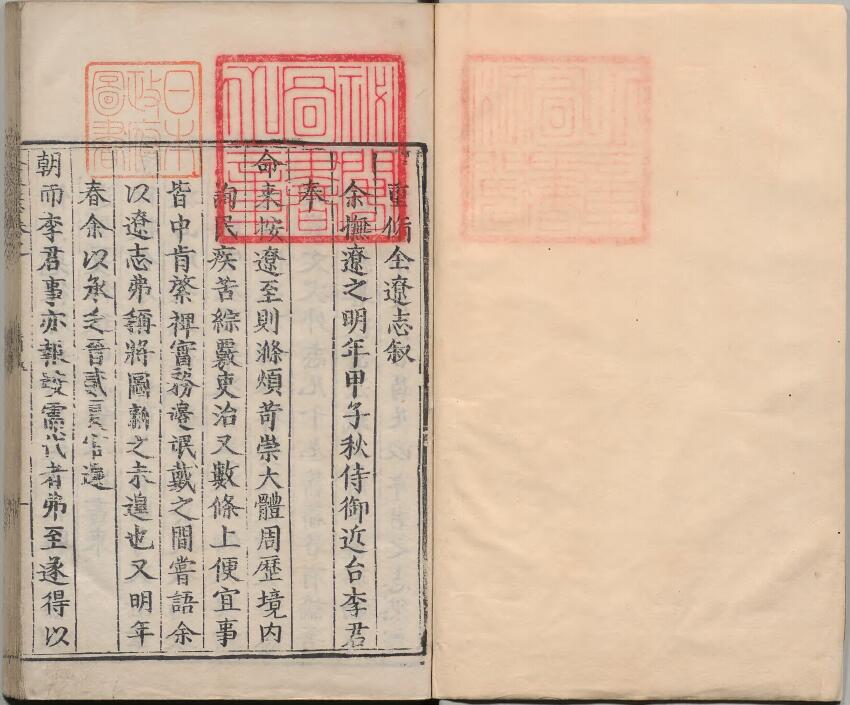 日本
政府
圖書
祕閣
圖書
之章
重脩全遼志叙
余撫遼之明年甲子秋侍御近台李君
奉
命来按遼至則滌煩苛崇大體周歷境内
詢民疾苦綜覈吏治又數條上便宜事
皆中肯綮裨實務邊氓戴之間嘗語余
以遼志弗稱將圖新之未遑也又明年
春余以承乏晉貳夏官還
朝而李君事亦報竣需代者弗至遂得以